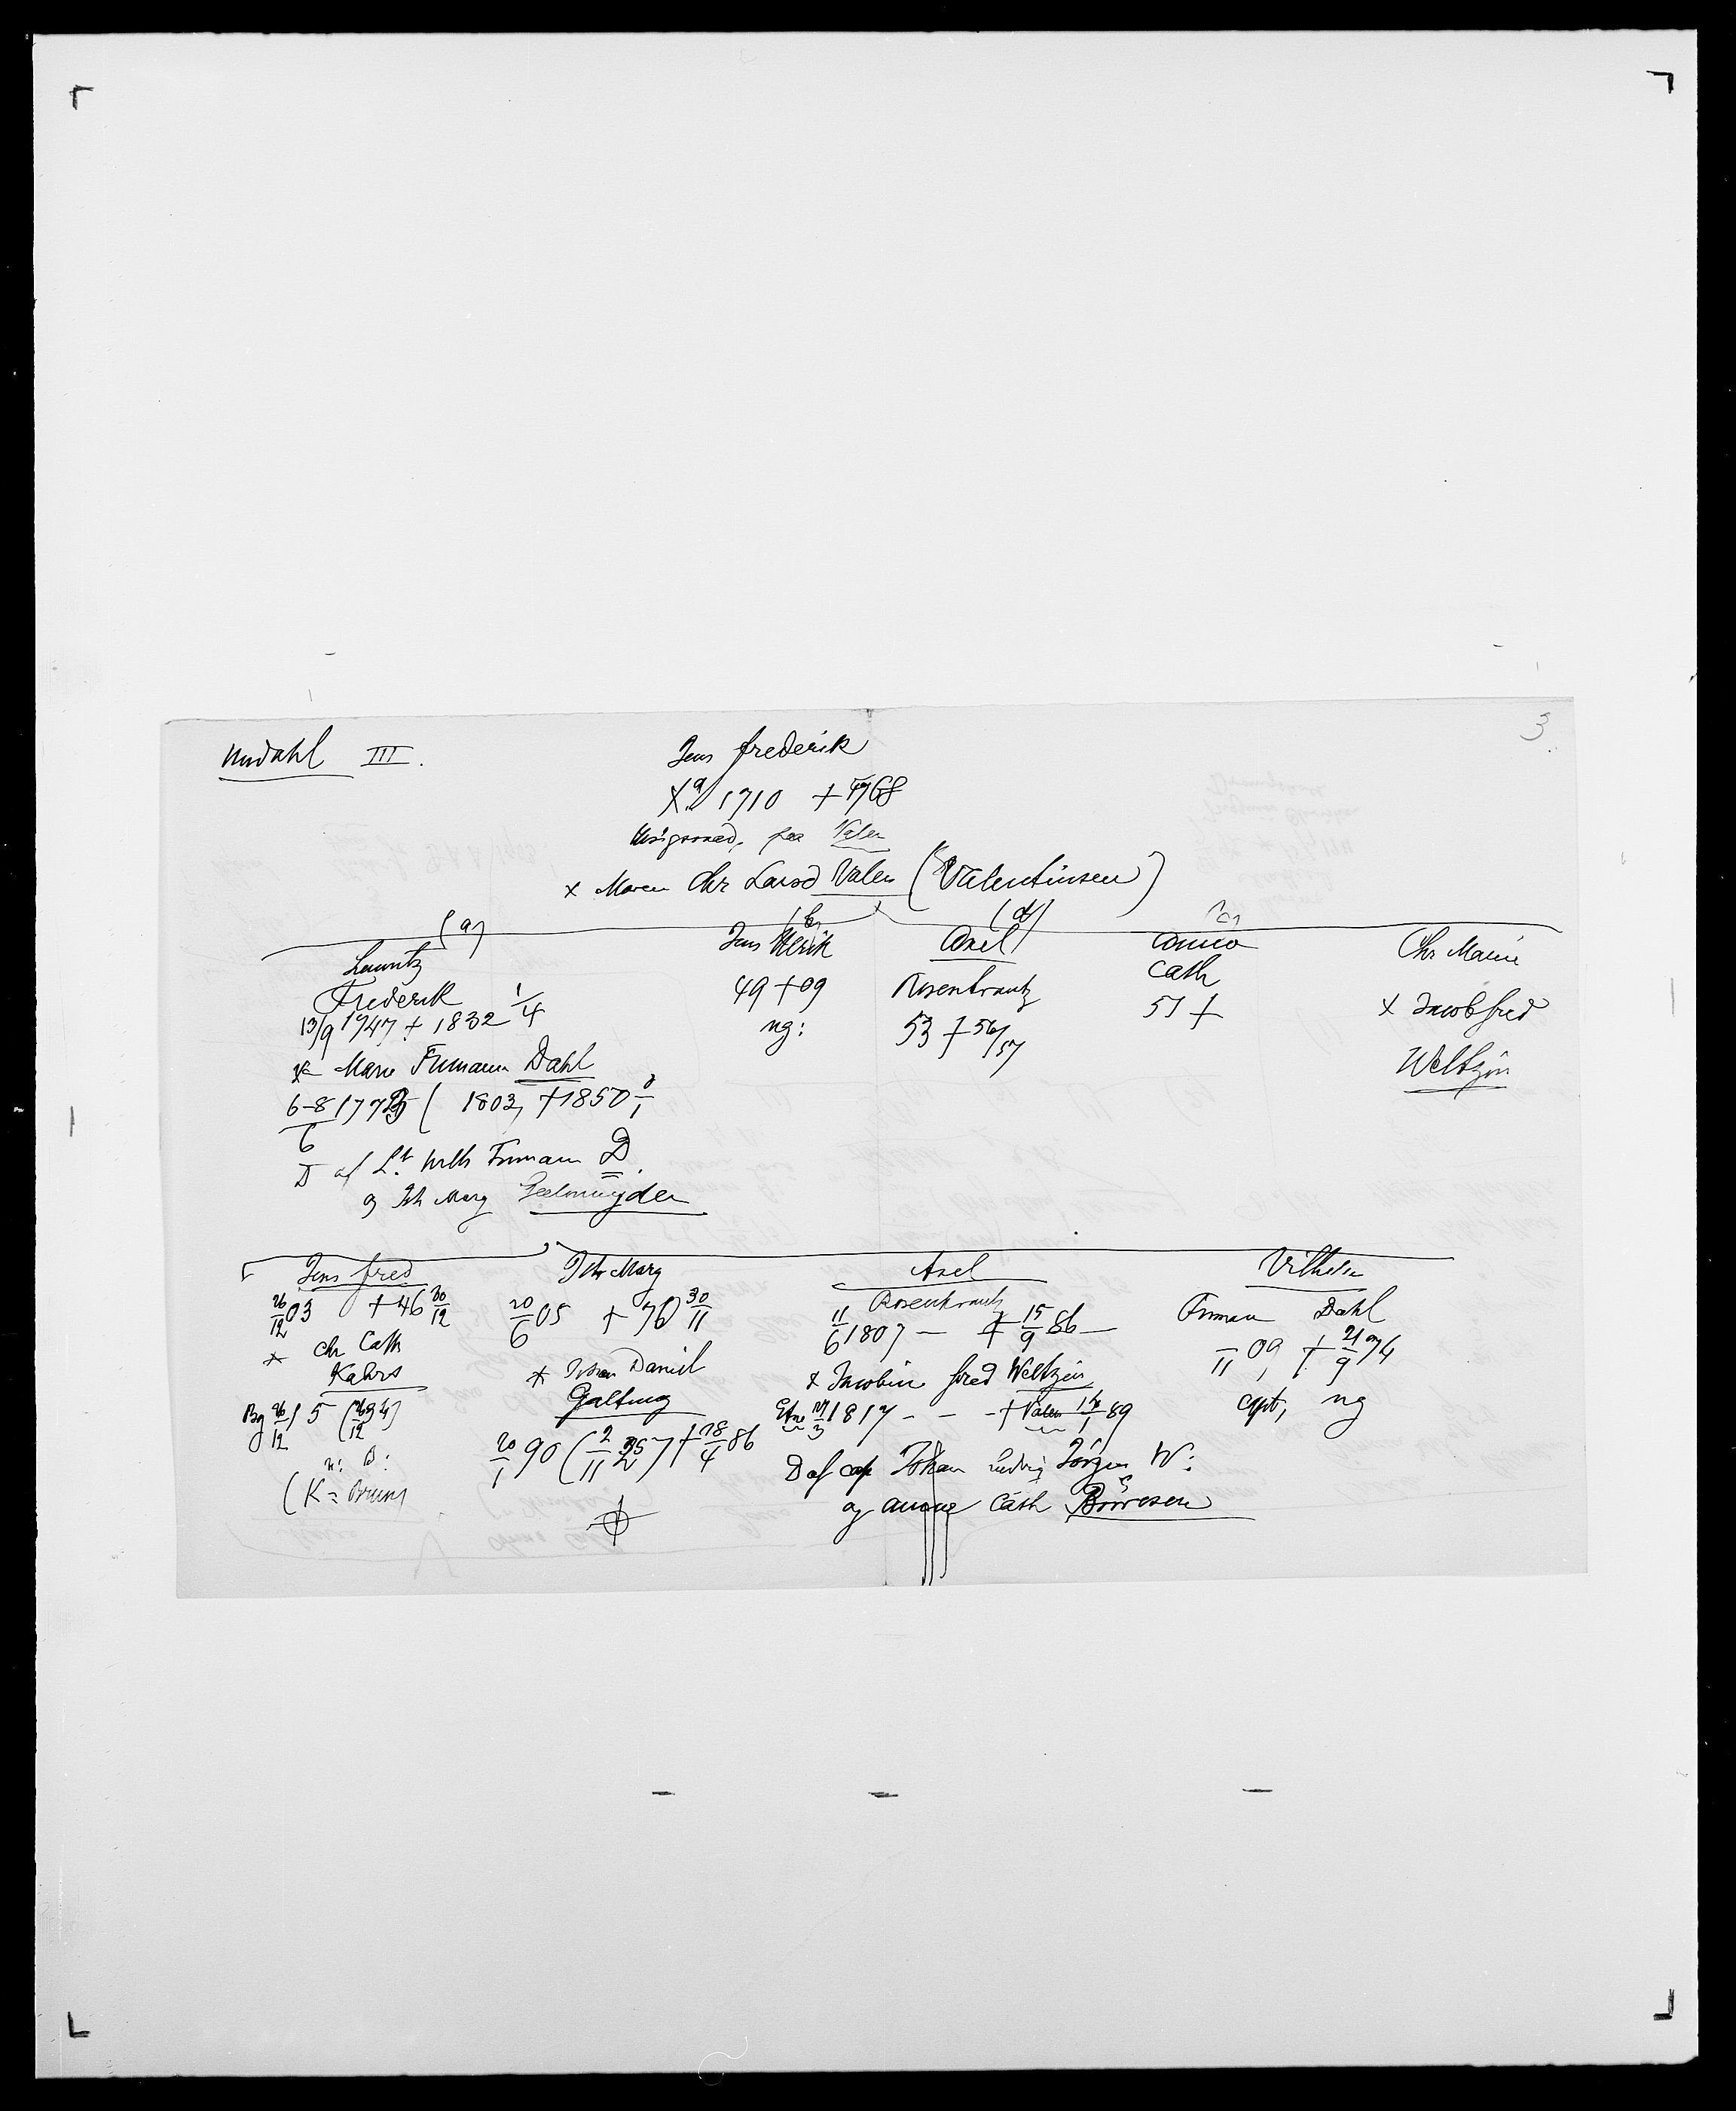 Undahl III.
3
Jens frederik
1710 + 68
paa Valen
x Maren Chr Larsd Valen (Valentinsen)
(a)
Lauritz
Frederik
13/9 1747 + 1832 1/4
x Marie Frimann Dahl
6-8/6 177 ( 1803, +1850
D af Lt Wilh Frimann D.
og Joh Marg Geelmuyden
(b)
Jens Ulrik
49 + 09
ng:
(d)
Axel
Rosenkrantz
53 + 56/57
(c)
Anna
Cath
51 +
Chr Marie
x Jacob fred
Weltzin
Jens fred
26/12 03 + 46 30/12
x Chr Cath
Kahrs
Bg 26/12 15
(K = Bruns)
Joh Marg
20/6 05 + 76 30/11
x Johan Daniel
Galtung
20/1 90 (2/11 ) + 18/4 86
Axel
Rosenkrantz
11/6 1807 — + 15/9 86 —
x Jacobine fred Weltzin
Etne 1817 - - - + Valen 89
D af cap Johan Ludvig Jörgen W:
og Anne Cath Börresen
Vilhelm
Friman Dahl
11 09, + 21/9 74
cpt, ng